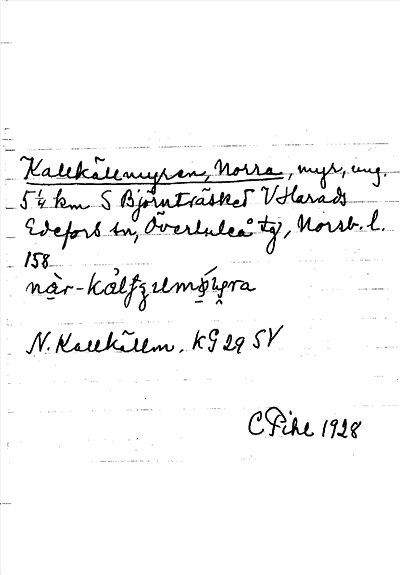 Kallkällmyran, Norra, myr, ung.
5 ¼ km S Björnträsket V Harads
Edefors sn, Överluleå tg, Norrb. l.
158
N. Kallkällm. KG 29 SV
C Pihl 1928